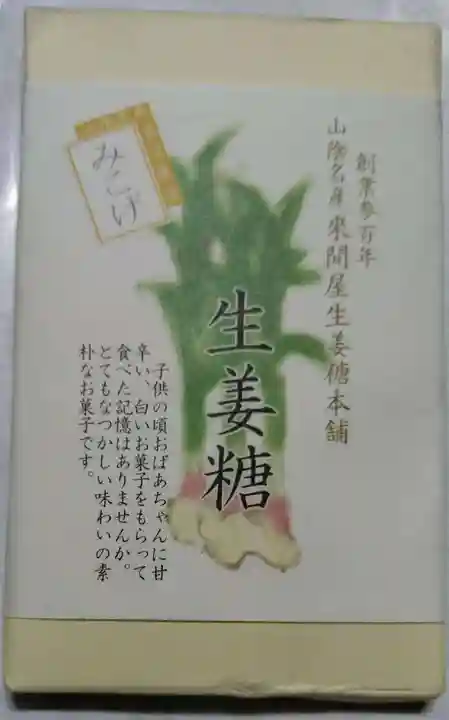 創業参百年
山陰名産來間屋生姜糖本舗
生姜糖
みこげ
子供の頃おばあちゃんに甘
辛い、白いお菓子をもらって
食べた記憶はありませんか。
とてもなつかしい味わいの素
朴なお菓子です。